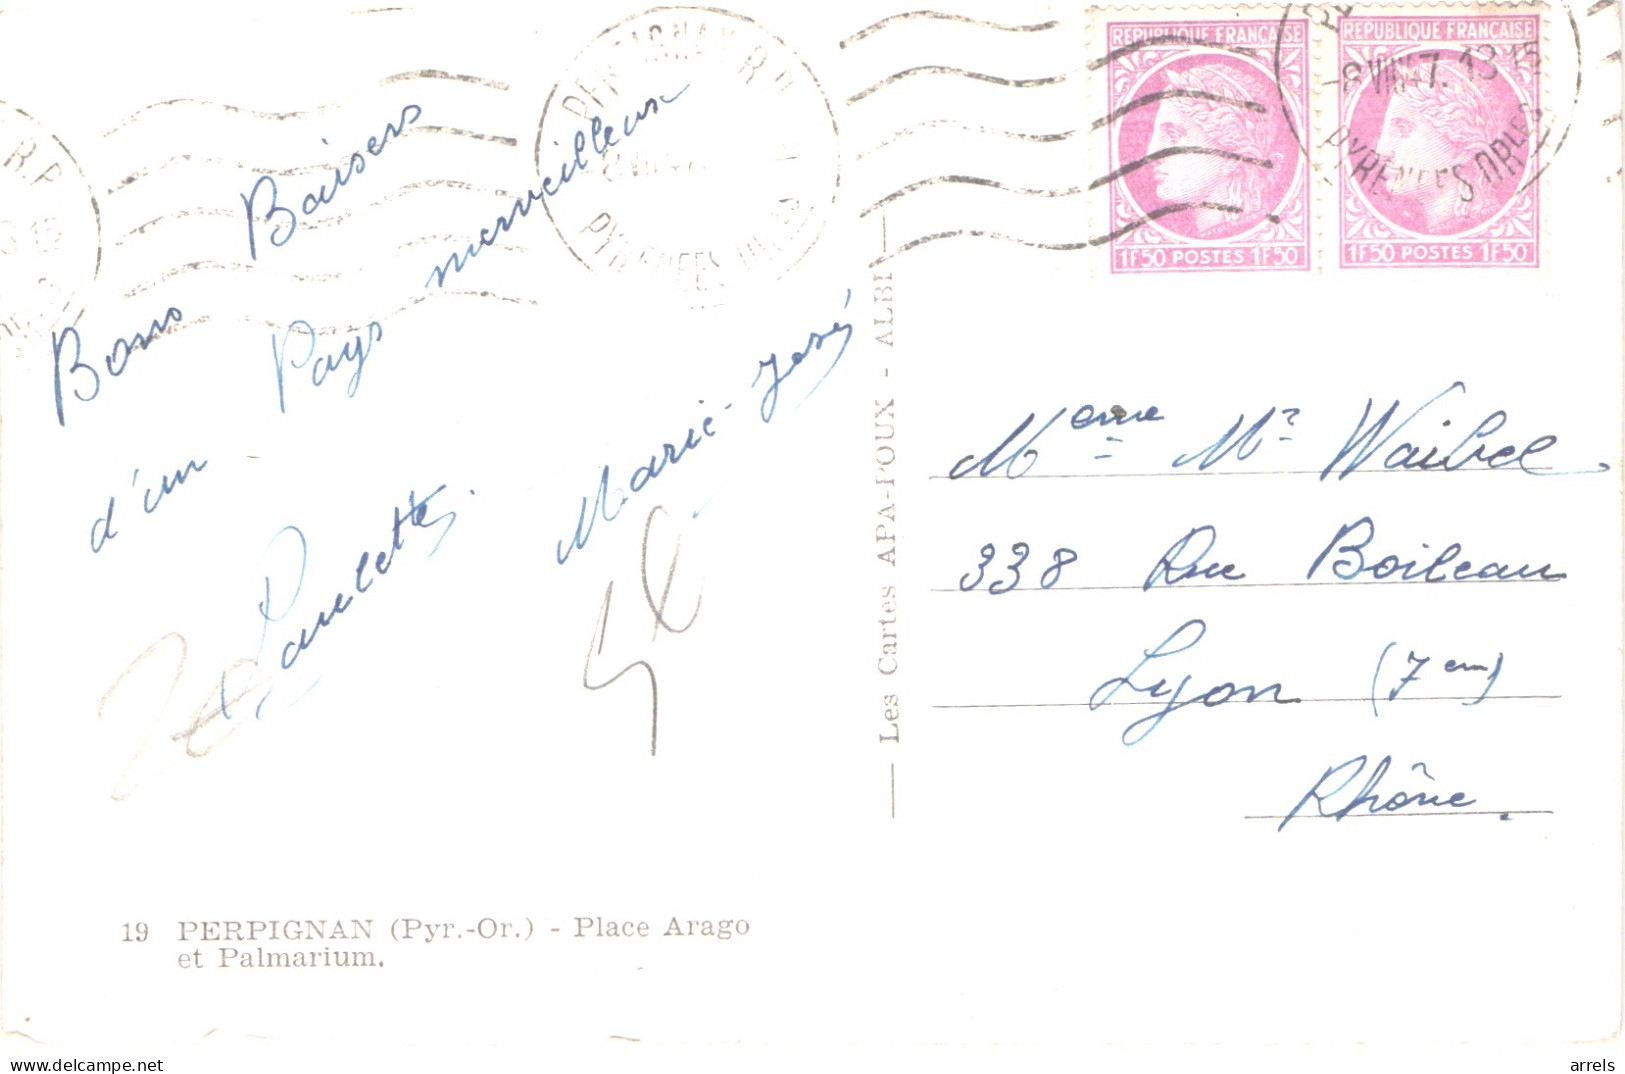 Bons Baisers
d'un Pays merveilleux
Paulette.
Marie-José
19 PERPIGNAN (Pyr.-Or.) - Place Arago
et Palmarium.
Les Cartes APA-POUX - ALBI
PERPIGNAN R.P.
PYRENEES OR
R.P
15
REPUBLIQUE FRANÇAISE
1F50 POSTES 1F50
REPUBLIQUE FRANÇAISE
1F50 POSTES 1F50
13 15
PYRENEES ORLES
Meme Mr Waibel
338 Rue Boileau
Lyon (7em)
Rhône.
arrels